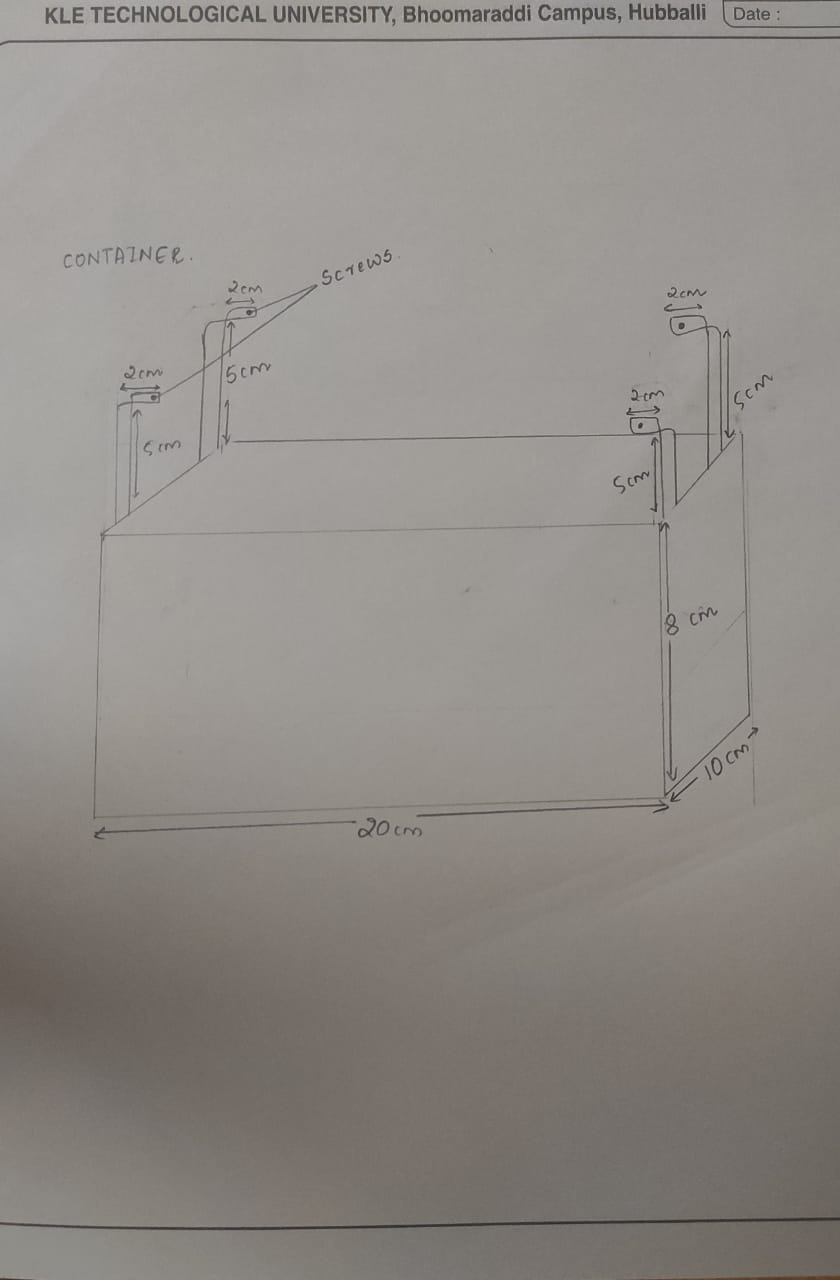 KLE TECHNOLOGICAL UNIVERSITY, Bhoomaraddi Campus, Hubballi
Date :
CONTAINER.
Screws.
2cm
2cm
2cm
5cm
5cm
2cm
5cm
5cm
8 cm
10cm
20cm